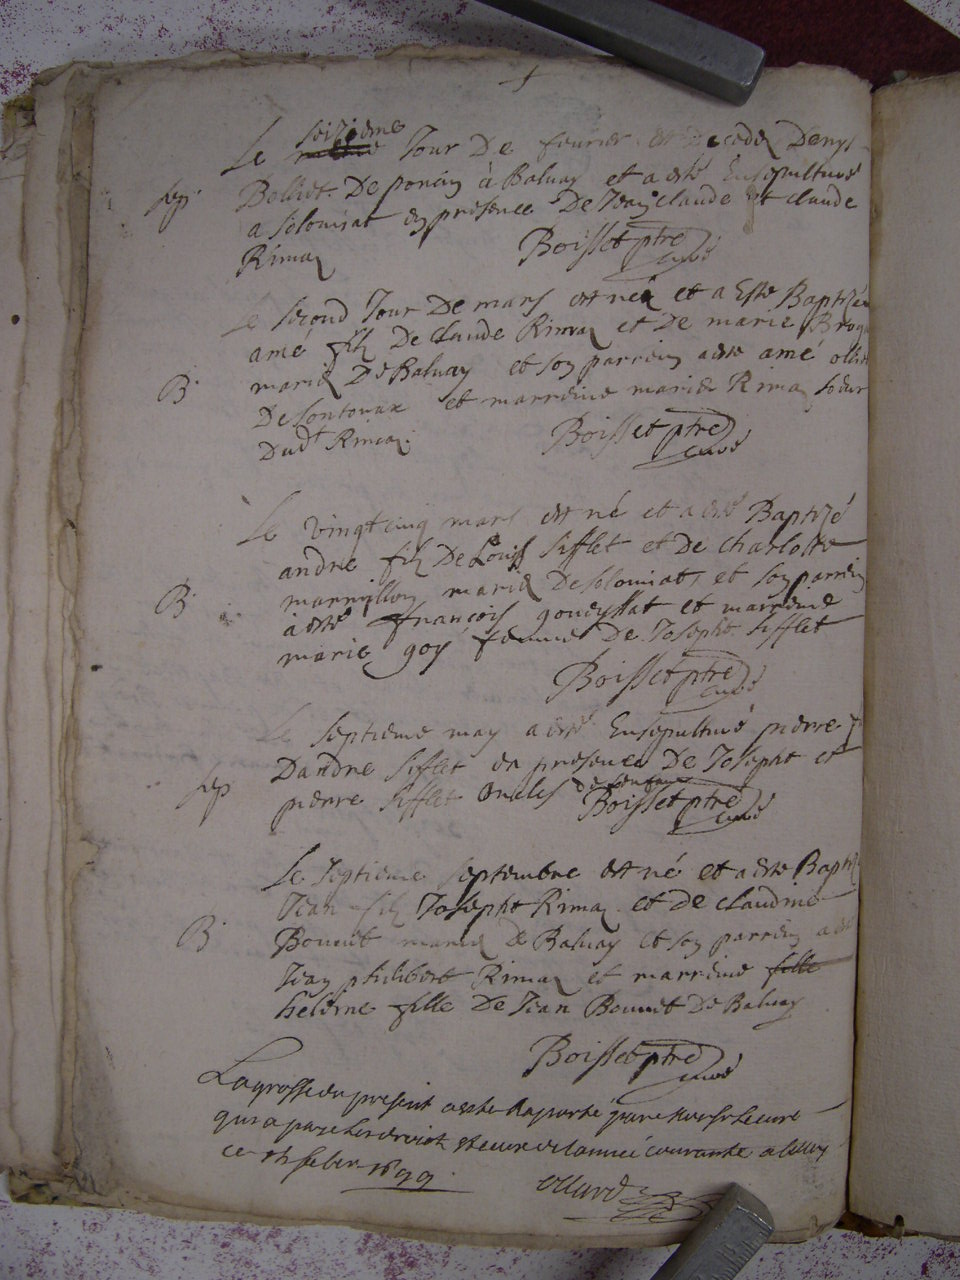 seizieme
Le Jour De feurier est Decedez Denys
sep.
Bolliet De poncin à Baluay et a esté Ensepulturé
a solomiat en presence De Jean claude et claude
Rimaz
Boisset ptre curé
Le second Jour De mars est néz et a Esté Baptizé
amé filz De Claude Rimaz et De marie
B.
mariez De Baluay et son parrein a esté amé
De et marreine marie Rimaz soeur
Dudt Rimaz.
Boisset ptre curé
Le vingt cinq mars est né et a esté Baptizé
andre filz De Louis Sifflet et De Charlotte
B.
mariez De solomiat et son parrein
à esté françois et marreine
marie goy femme De Joseph Sifflet
Boisset ptre curé
Le septieme may a esté Ensepulturé pierre
sep
Dandre Sifflet en presence De Joseph et
pierre Sifflet oncles
Boisset ptre curé
Le septieme septembre est né et a esté Baptizé
Jean filz Joseph Rimaz et De Claudine
B.
Bouuet mariez De Baluay et son parrein a esté
Jean philibert Rimaz et marreine fille
heleine fille De Jean Bouuet De Baluay
Boisset ptre curé
La grosse du present a esté Raporté par le curé
qui a payé les droict de l'année courante
ce 1699